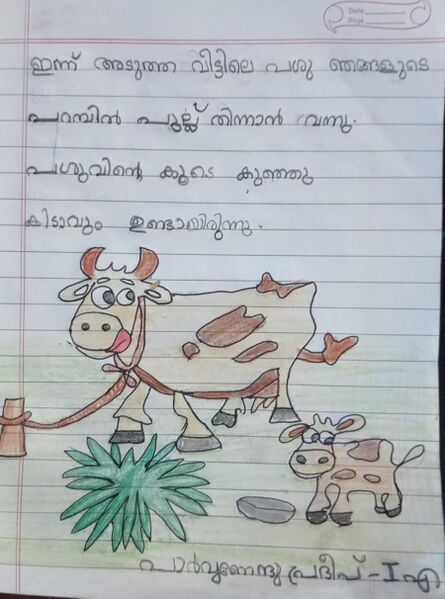 Date
Page
ഇന്ന് അടുത്ത വീട്ടിലെ പശു ഞങ്ങളുടെ
പറമ്പിൽ പുല്ല് തിന്നാൻ വന്നു.
പശുവിൻ്റെ കൂടെ കുഞ്ഞു
കിടാവും ഉണ്ടായിരുന്നു.
പാർവ്വണേന്ദു പ്രദീപ് - I എ